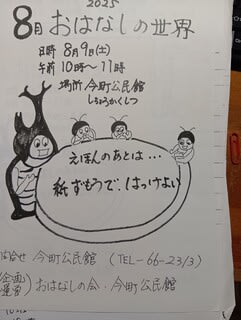 2025
8月 おはなしの世界
日時 8月9日(土)
午前 10時〜11時
場所 今町公民館
えほんのあとは…
紙ずもうで、はっけよい
問合せ 今町公民館 (TEL-66-2313)
おはなしの会・今町公民館